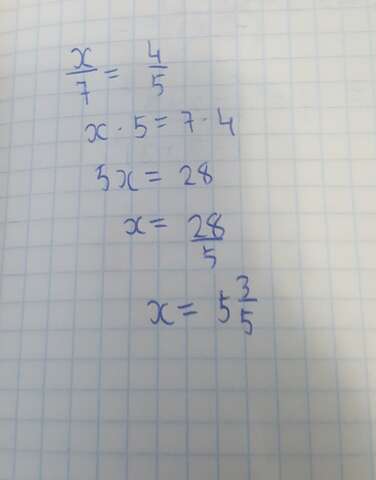 x/7 = 4/5
x · 5 = 7 · 4
5x = 28
x = 28/5
x = 5 3/5